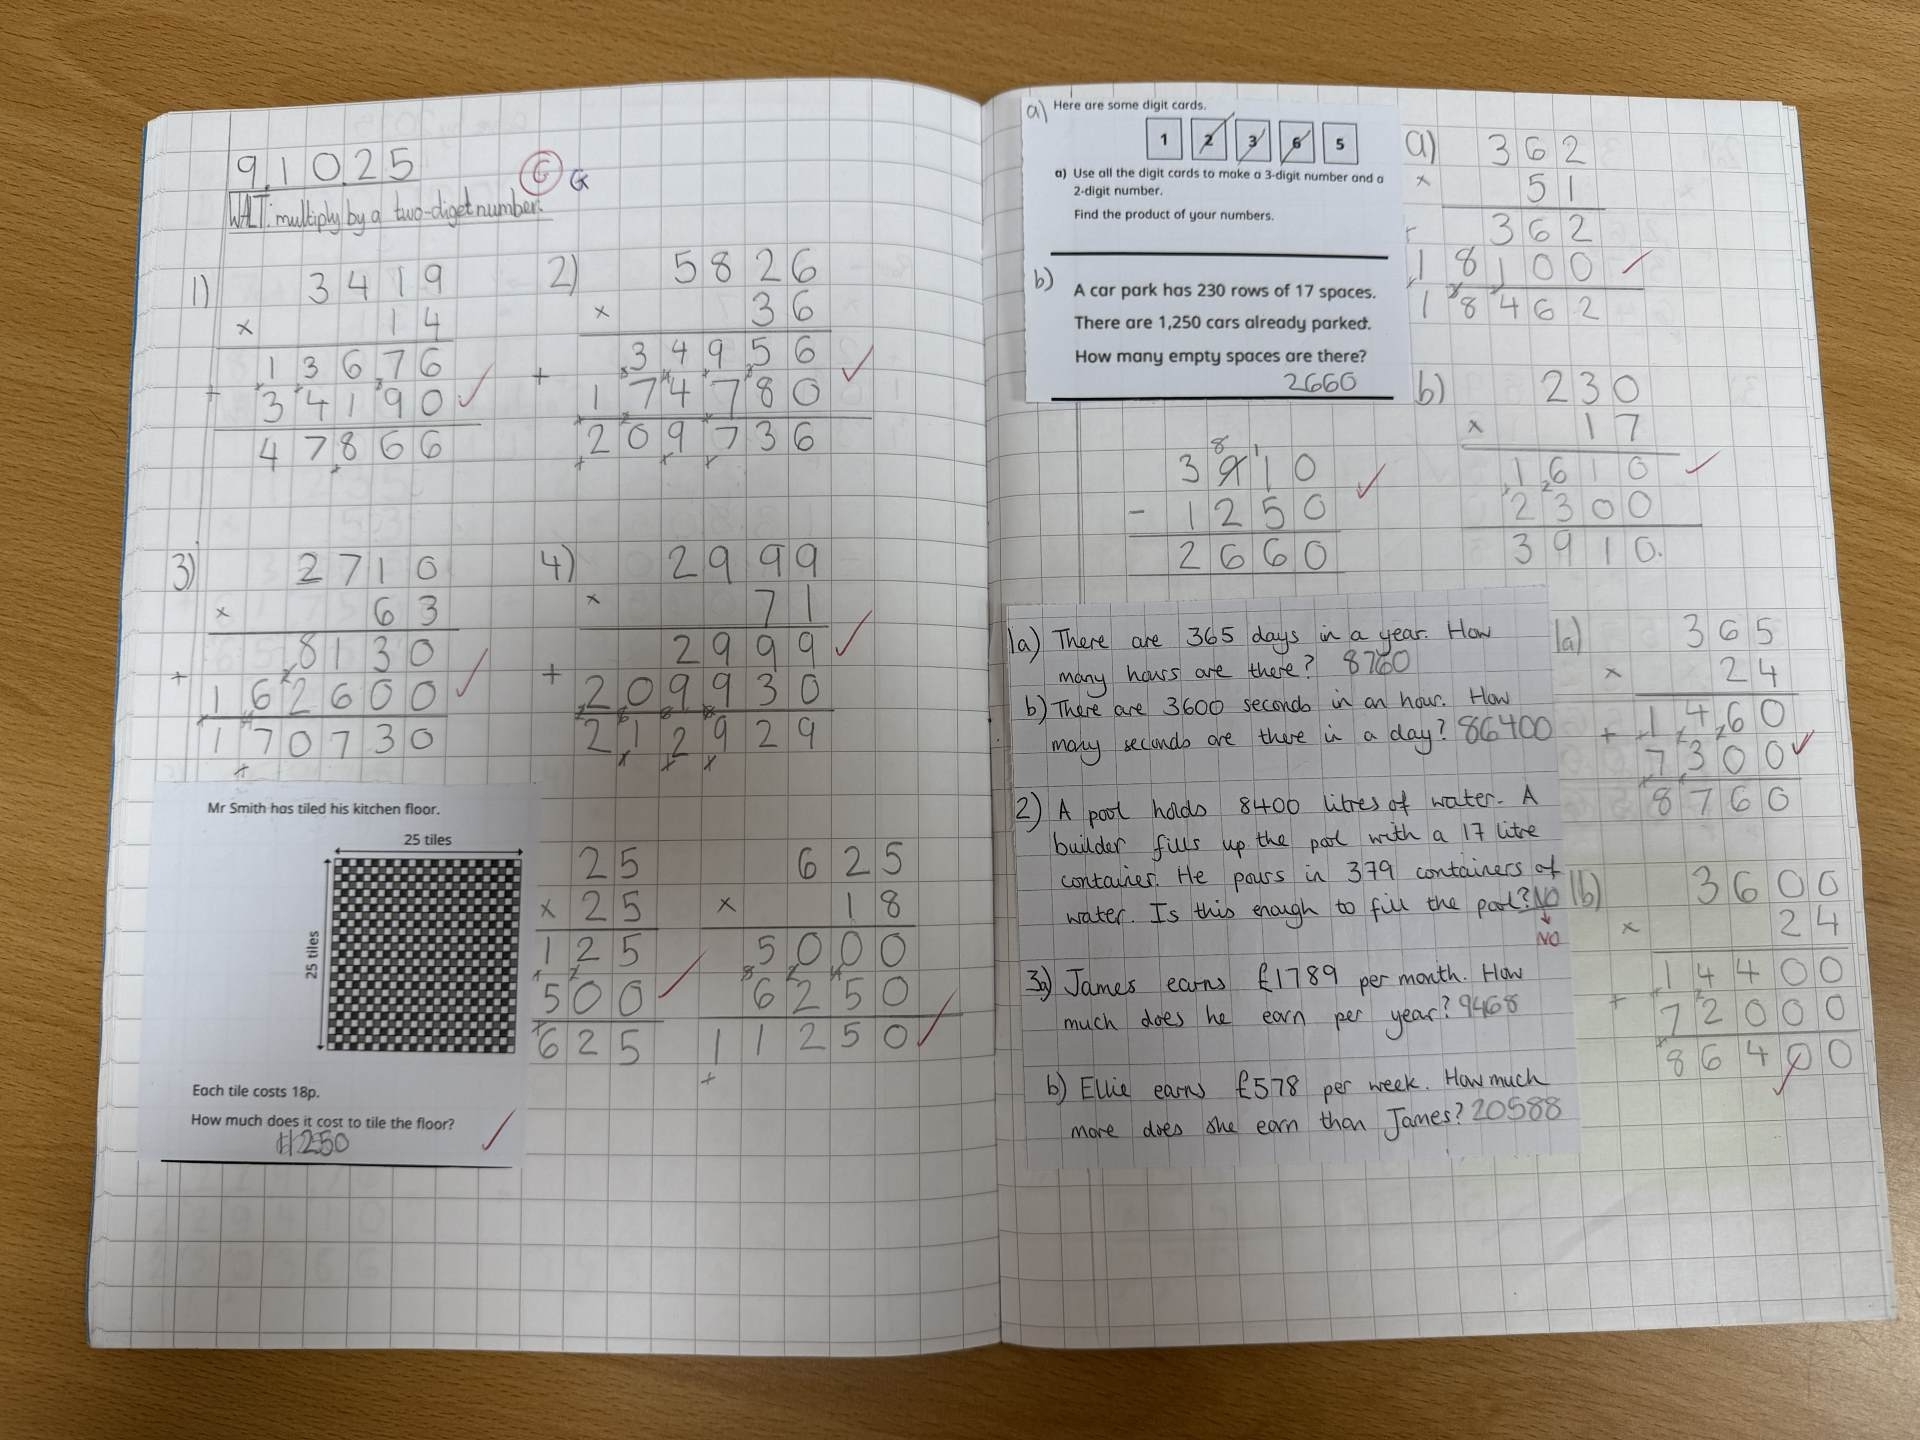 9.10.25
G G
WALT: multiply by a two-diget number.
1) 3419
× 14
13676
+ 34190
47866
2) 5826
× 36
34956
+ 174780
209736
3) 2710
× 63
8130
+ 162600
170730
4) 2999
× 71
2999
+ 209930
212929
Mr Smith has tiled his kitchen floor.
25 tiles
25 tiles
Each tile costs 18p.
How much does it cost to tile the floor?
11250
25
× 25
125
500
625
625
× 18
5000
6250
11250
a) Here are some digit cards.
1 2 3 6 5
a) Use all the digit cards to make a 3-digit number and a
2-digit number.
Find the product of your numbers.
b) A car park has 230 rows of 17 spaces.
There are 1,250 cars already parked.
How many empty spaces are there?
2660
a) 362
× 51
362
+ 18100
18462
b) 230
× 17
1610
2300
3910.
3910
- 1250
2660
1a) There are 365 days in a year. How
many hours are there? 8760
b) There are 3600 seconds in an hour. How
many seconds are there in a day? 86400
2) A pool holds 8400 litres of water. A
builder fills up the pool with a 17 litre
container. He pours in 379 containers of
water. Is this enough to fill the pool? NO
NO
3a) James earns £1789 per month. How
much does he earn per year? 9468
b) Ellie earns £578 per week. How much
more does she earn than James? 20588
1a) 365
× 24
+ 1460
7300
8760
1b) 3600
× 24
14400
+ 72000
86400